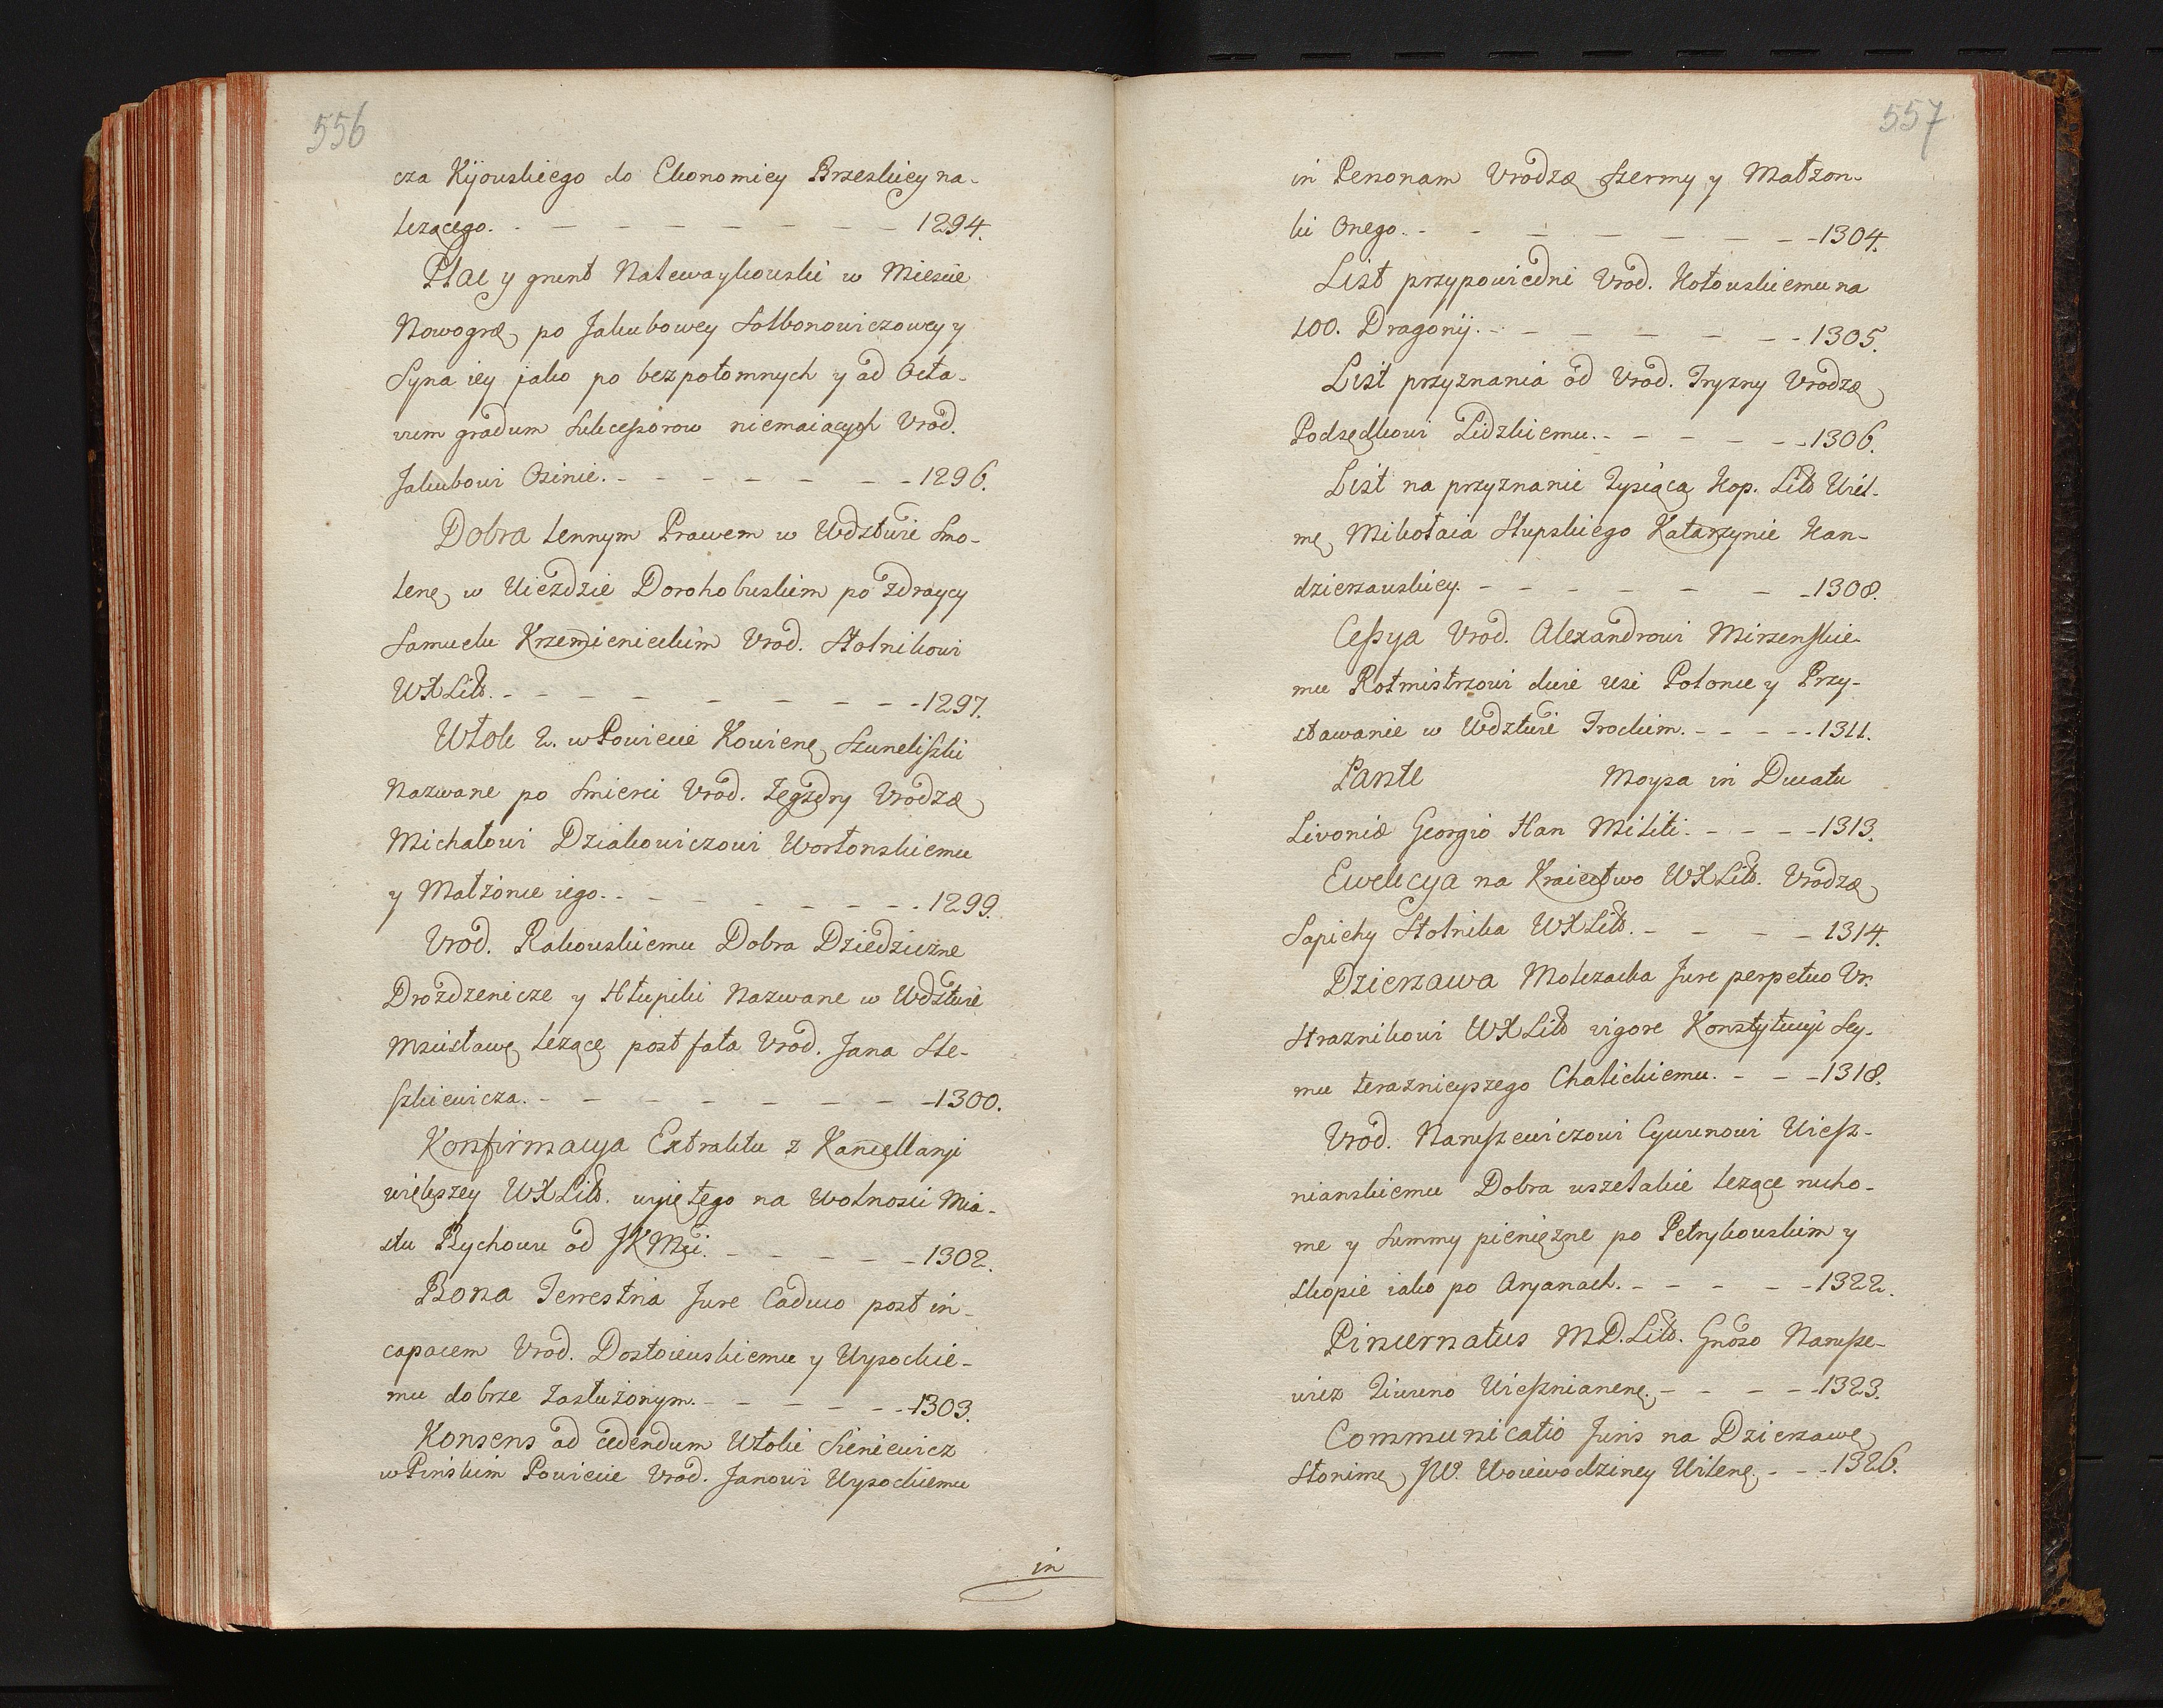 556
cza Kijowskiego do Ekonomiey Brzeskiey na-
lezącego. - - - - - - - - 1294.
Plac y grunt Nalewaykowski w Miescie
Nowogrę po Jakubowey Sołbonowiczowey y
Syna iey jako po bezpotomnych y ad Octa-
vum gradum Sukcessorow niemaiących Urod.
Jakubowi Osinie. - - - - - - 1296.
Dobra lennym Prawem w Wdztwie Smo-
lenę w Uiezdzie Dorohobuskim po zdraycy
Samuelu Krzemienieckim Urod. Stolnikowi
WXLitt. - - - - - - - - 1297.
Włok 2. w Powiecie Kowienę Szuneliszki
Nazwane po Smierci Urod. Zegzdry Urodzæ
Michałowi Dziakowiczowi Wortonskiemu
y Małżonce iego. - - - - - - - 1299.
Urod. Rakowskiemu Dobra Dziedziczne
Drozdzenicze y Hłupiki Nazwane w Wdztwie
Mscisławę lezące post fata Urod. Jana Ste-
szkiewicza. - - - - - - - 1300.
Konfirmacya Extraktu z Kancellaryi
większey WXLitt. wyiętego na Wolnosci Mia-
stu Bychowu od JKMci. - - - - 1302.
Bona Terrestria Jure Caduco post in-
capacem Urod. Dostoiewskiemu y Wysockie-
mu dobrze zasłużonym. - - - - - 1303.
Konsens ad cedendum Włoki Sieniewicz
w Pińskim Powiecie Urod. Janowi Wysockiemu
in
557
in Personam Urodzæ Szermy y Małzon-
ki Onego. - - - - - - - 1304.
List przypowiedni Urod. Kotowskiemu na
100. Dragonij. - - - - - - 1305.
List przyznania od Urod. Tryzny Urodzæ
Podsędkowi Lidzkiemu. - - - - - 1306.
List na przyznanie Tysiąca Kop. Litt Wil-
mę Mikołaia Słupskiego Katarzynie Kan-
dzierzawskiey. - - - - - - 1308.
Cessya Urod. Alexandrowi Mirzenskie-
mu Rotmistrzowi dwie wsi Połonce y Przy-
stawanie w Wdztwie Trockim. - - - - 1311.
Pantle Moysa in Ducatu
Livoniæ Georgio Han Militi. - - - - 1313.
Ewekcya na Kraiectwo WXLitt. Urodzæ
Sapiehy Stolnika WXLitt. - - - - 1314.
Dzierzawa Molczacka Jure perpetuo Ur.
Straznikowi WXLitt vigore Konstytucyi Sey-
mu teraznieyszego Chaleckiemu. - - - 1318.
Urod. Naruszewiczowi Cywunowi Wiesz-
nianskiemu Dobra wszelakie lezące rucho-
me y Summy pieniężne po Petrykowskim y
Skopie iako po Aryanach. - - - - - 1322.
Pincernatus M.D.Litt. Gnoso Narusze-
wicz Ziwuno Wieszniane̜. - - - - - 1323.
Communicatio Juris na Dzierzawę
Słonimę JW. Woiewodziney Wilenę. - - - 1326.